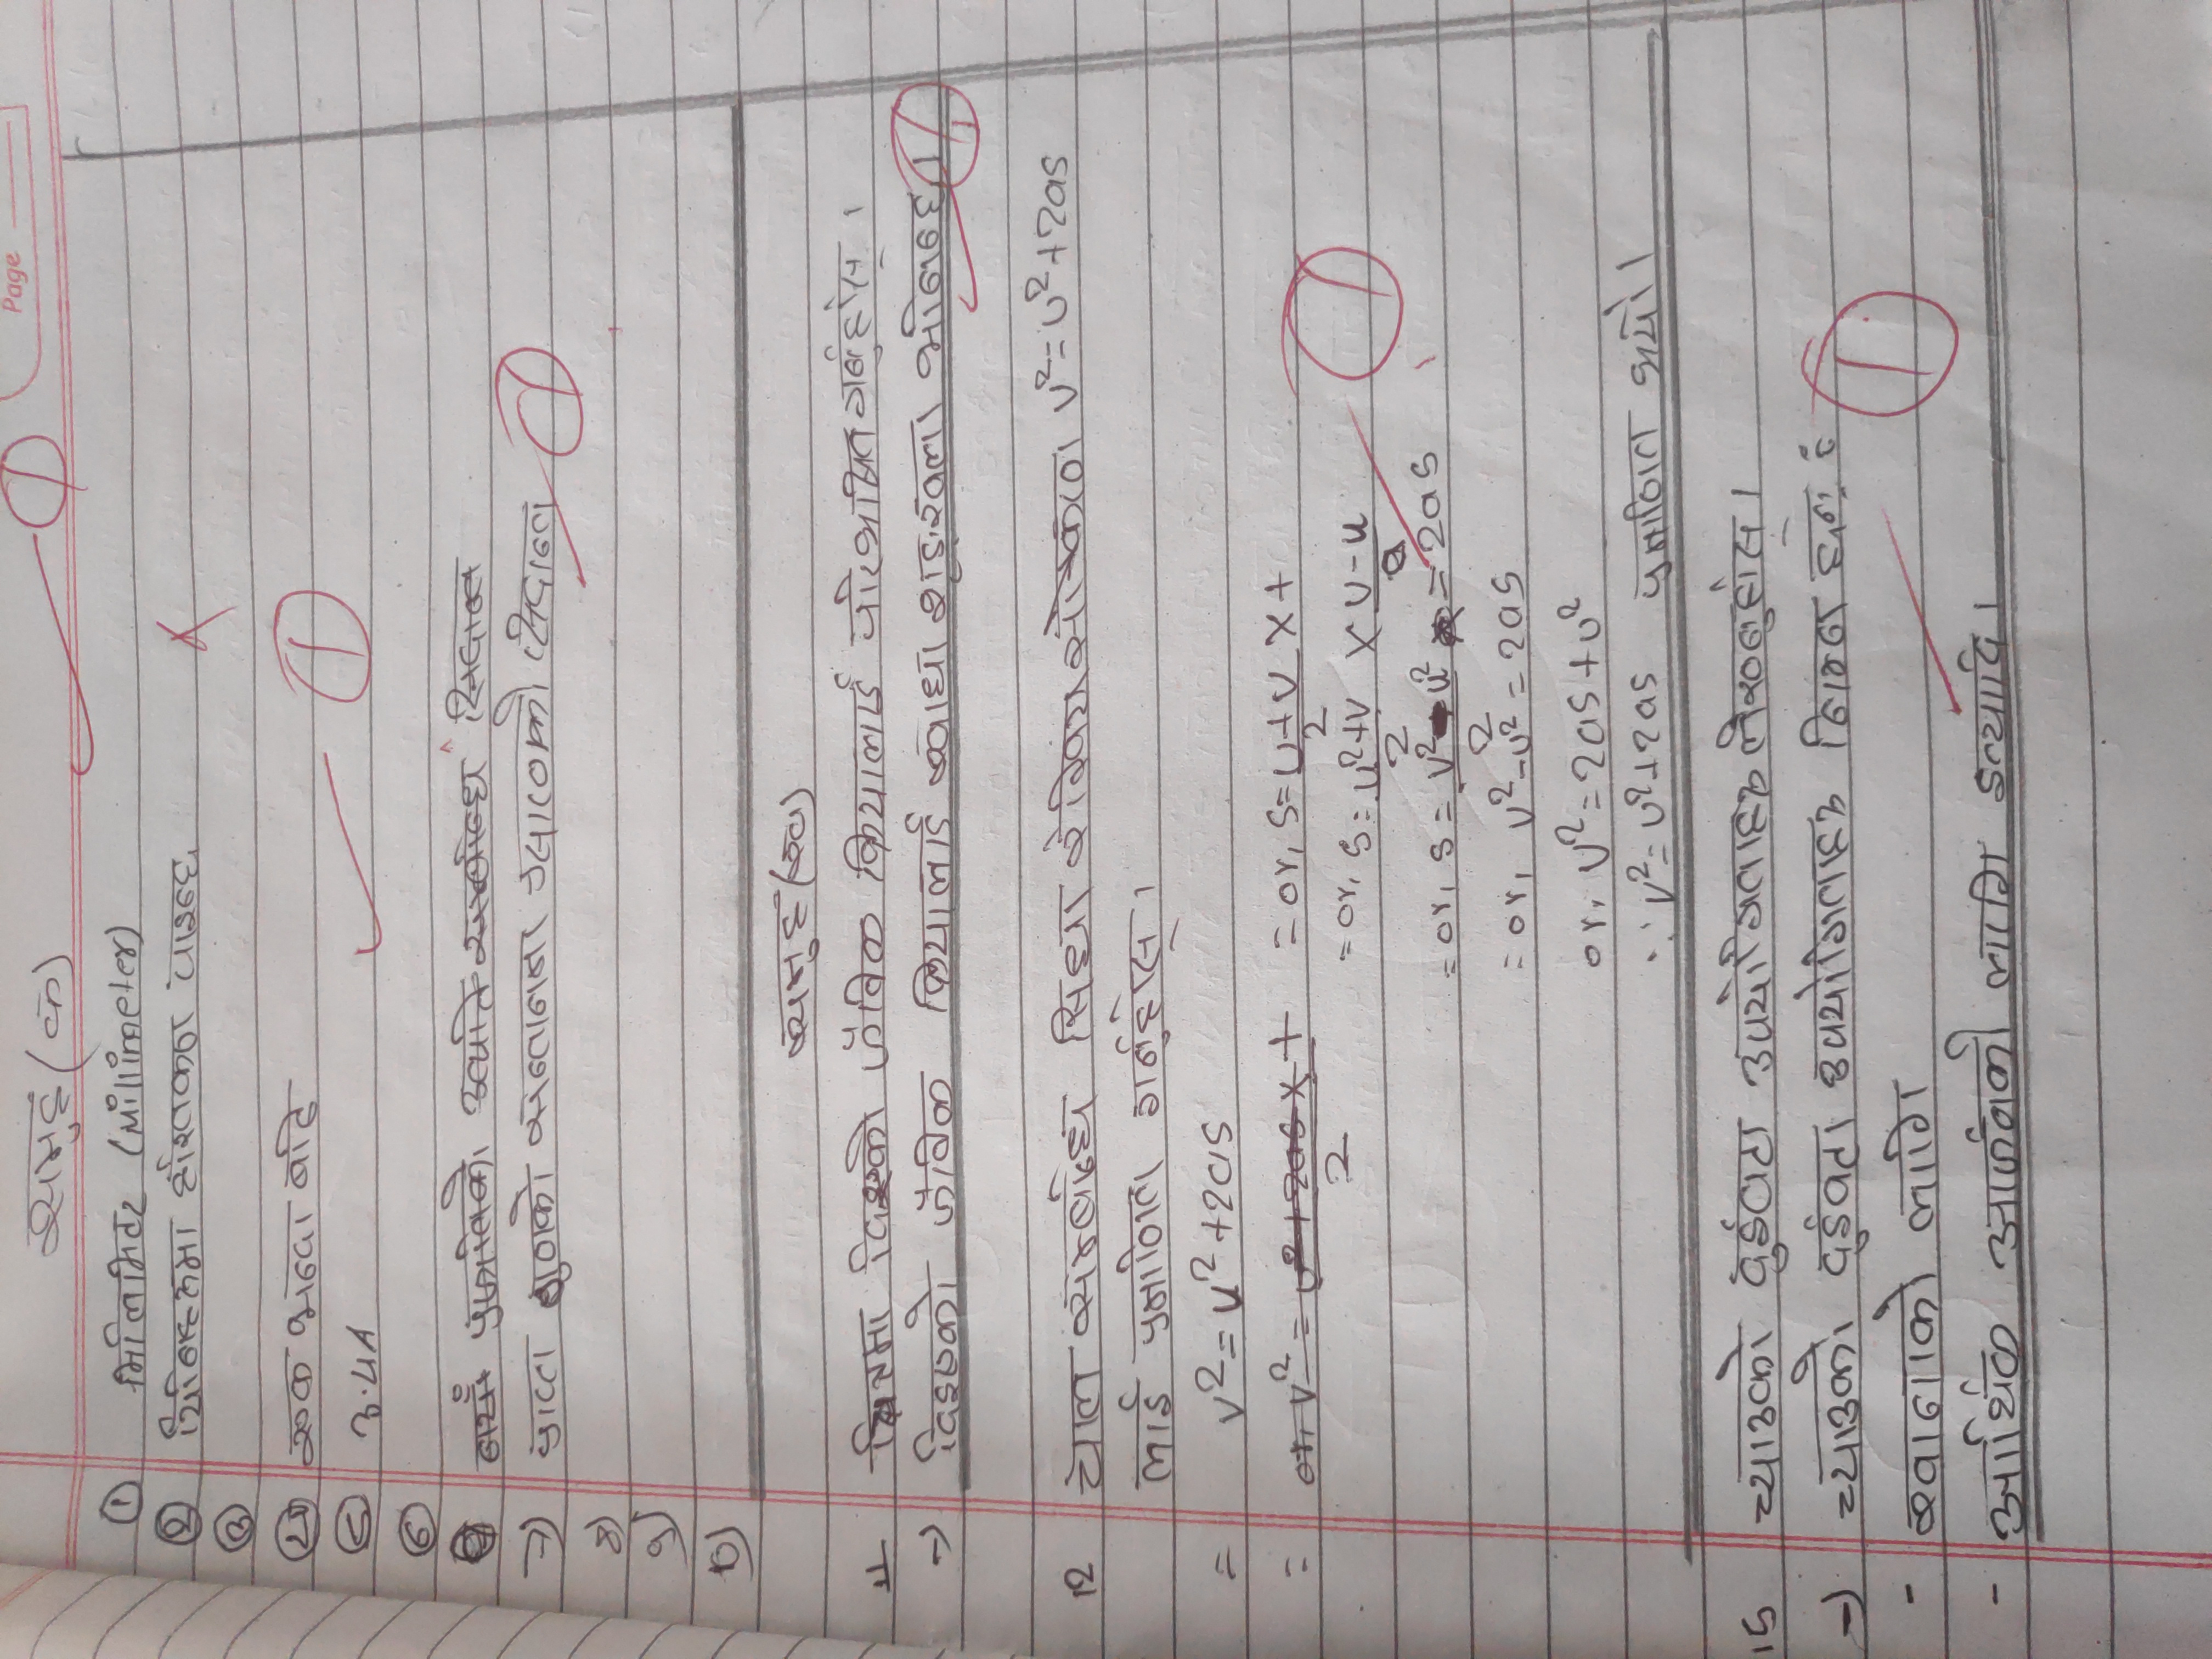 Page
समुह (क)
① मिलिमिटर (Millimeter)
② यिनिहरुमा हरितकण पाइन्छ
③
④ एक भन्दा बढि
⑤ 3.4A
⑥
नयाँ प्रजातिको उत्पत्ति सम्बन्धि सिद्दान्त
7) प्राप्त गुणको सन्तानमा सिद्दान्त
8)
9)
10)
समुह (ख)
11 चित्रमा दिइएको जैविक क्रियालाई परिभाषित गर्नुहोस् ।
→ दिइएको जैविक क्रियालाई खाधा शृङ्खला भनिन्छ ।
12 चाल सम्बन्धि सिधा रेखिय समिकरण v²=u²+2as
लाई प्रमाणित गर्नुहोस् ।
= v²=u²+2as
= or, v² = u²+2as x t / 2 = or, s = u+v / 2 x t
= or, s = u²+v / 2 x v-u / a
= or, s = v²-u² / 2 = 2as
= or, v²-u² = 2as
or, v² = 2as+u²
∴ v² = u²+2as प्रमाणित भयो ।
15 च्याउको दुईवटा उपयोगिताहरु लेख्नुहोस् ।
→ च्याउको दुईवटा उपयोगिताहरु निम्न छन् :
- खानाको लागि
- आर्थिक आर्जनको लागि इत्यादि ।